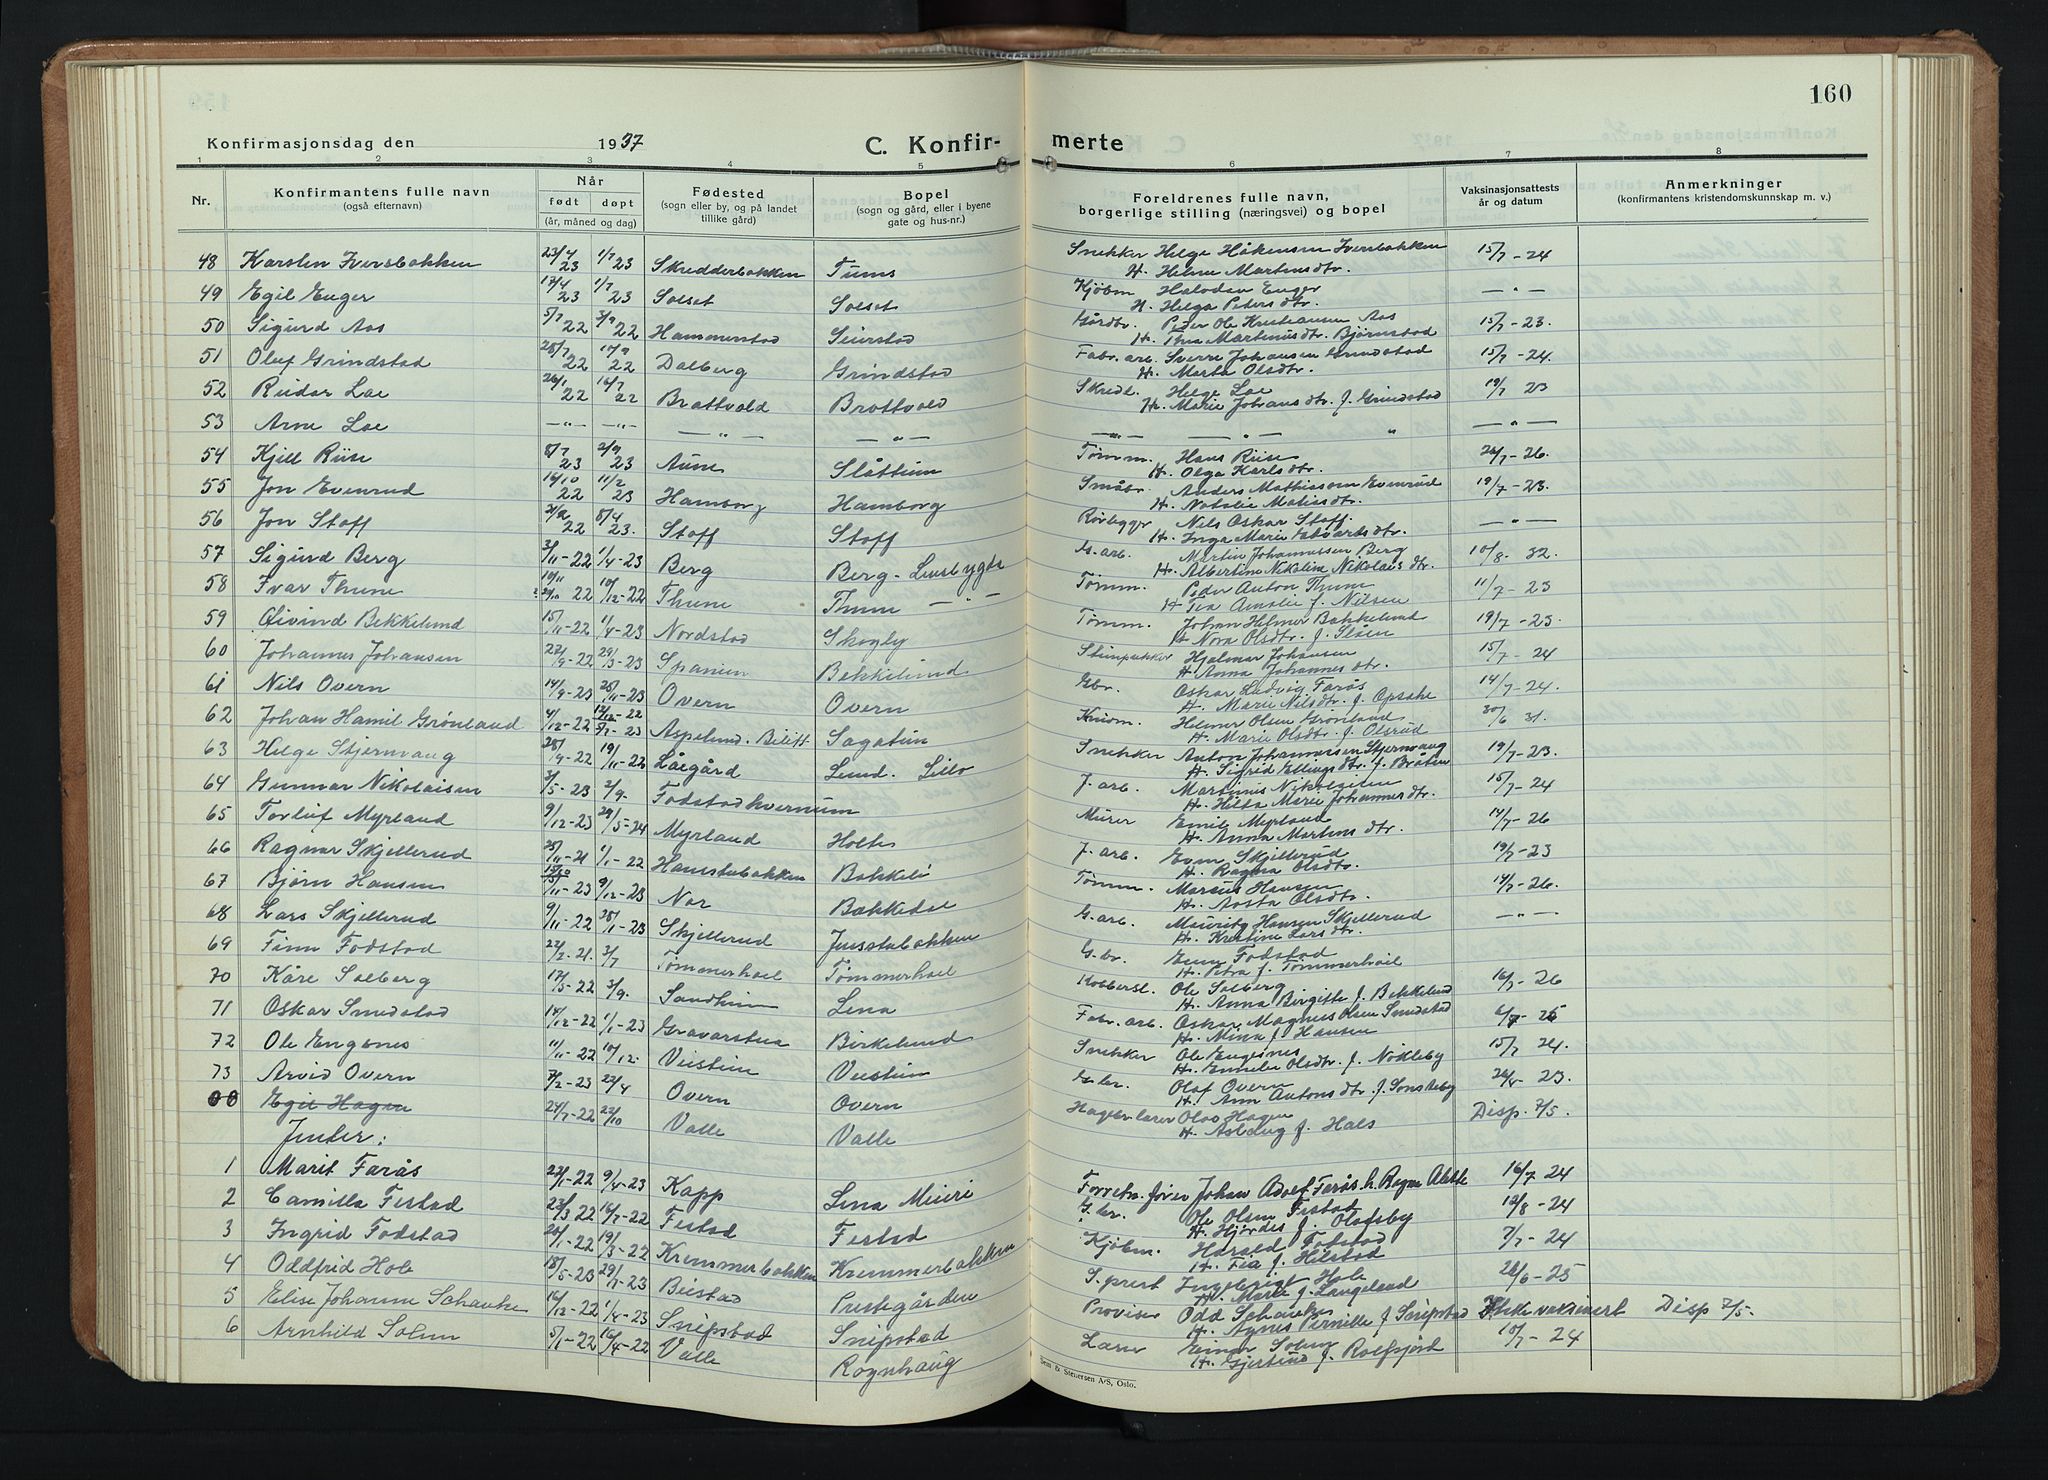 160
Konfirmasjonsdag den 1937 C. Konfir- merte
1 2 3 4 5 6 7 8
Nr. Konfirmantens fulle navn Når Fødested Bopel Foreldrenes fulle navn, Vaksinasjonsattests Anmerkninger
(også efternavn) født døpt (sogn eller by, og på landet (sogn og gård, eller i byene borgerlige stilling (næringsvei) og bopel år og datum (konfirmantens kristendomskunnskap m. v.)
(år, måned og dag) tillike gård) gate og hus-nr.)
48 Karsten Iversbakken 23/4 23 1/7 23 Skredderbakken Tums Snekker Helge Håkensen Iversbakken 15/7 - 24
H. Helene Martinsdtr.
49 Egil Enger 17/4 23 1/7 23 Solset Solset Kjøbm Halvdan Enger — " —
H. Helga Pedersdtr.
50 Sigurd Aas 5/7 22 3/9 22 Hammerstad Seierstad Gårdbr. Peder Ole Kristiansen Aas 15/7 - 23.
H. Thea Martinusdtr. Bjørnstad
51 Oluf Grindstad 28/7 22 17/9 22 Dalberg Grindstad Fabr. arb. Sverre Johansen Grindstad 15/7 - 24.
H. Marta Olsdtr.
52 Reidar Loe 26/1 22 16/7 22 Brattvold Brattvold Skredd. Helge Loe 19/7 23
H. Marie Johansdtr. f. Grindstad
53 Arne Loe — " — — " — — " — — " — — " — — " — " — " —
54 Kjell Riise 8/7 23 2/9 23 Aune Slåttum Tømm. Hans Riise 26/7 - 26.
H. Olga Karlsdtr.
55 Jon Evenrud 16/10 22 11/2 23 Hamborg Hamborg Småbr. Anders Mathiassen Evenrud 19/7 - 23.
H. Natalie Matiasdtr.
56 Jon Staff 21/12 22 8/4 23. Staff Staff Rørleggr Nils Oskar Staff. — " —
H. Inga Marie Edvartsdtr.
57 Sigurd Berg 3/11 - 22 1/4 - 23 Berg Berg - Lensbygda G. arb. Martin Johannessen Berg 10/8 - 32.
H. Albertine Nikoline Nikolaisdtr.
58 Ivar Thune 10/11 22 10/12 - 22 Thune Thune — " — Tømm. Peder Anton Thune 11/7 - 23
H Tea Amalie f. Nilsen
59 Øivind Bekkelund 15/11 - 22 1/4 - 23 Nordstad Skogly Tømm. Johan Helmer Bakkelund 19/7 - 23.
H Nora Olsdtr. f. Slåen
60 Johannes Johansen 22/9 - 22 29/3 - 23 Spanien Bekkelund Hjalmar Johansen 15/7 - 24
H Anna Johannesdtr.
61 Nils Overn 14/9 - 23 25/11 - 23 Overn Overn Gbr. Oskar Ludvig Farås 14/7 - 24.
H. Marie Nilsdtr. f. Opsahl
62 Johan Hamil Grønland 4/12 - 22 Aspelund. Beliff Sagatun Kusm. Helmer Olsen Grønland 30/6 31.
H. Marie Olsdtr. f. Olsrud
63 Helge Stjernvang 28/9 - 22 19/11 - 22 Låegård Lund. Lillo Snekker Anton Johannessen Stjernvang 19/7 - 23.
H. Sigrid Ellingsdtr. f. Bråten
64 Gunnar Nikolaisen 3/5 - 23 2/9. Fodstadkvernum J. arb. Martinus Nikolaisen 15/7 - 24
H. Hilda Marie Johannesdtr.
65 Torleif Myrland 9/12 - 23 29/5 - 24 Myrland Holte Murer Emil Myrland 14/7 - 26
H. Anna Martinsdtr.
66 Ragnar Skjellerud 25/11 - 21 1/1 - 22 Hanestabakken Bakkeli J. arb. Even Skjellerud 19/7 - 23
H. Ragna Olsdtr.
67 Bjørn Hansen 15/11 - 23 9/12 - 23 Nor Bakkedal Tømm. Marius Hansen 14/7 - 26.
H. Aasta Olsdtr.
68 Lars Skjellerud 9/11 - 22 28/1 - 23 Skjellerud Juvstabakken G. arb. Mauritz Hansen Skjellerud — " —
H. Kristine Larsdtr.
69 Finn Fodstad 22/2 - 21. 3/7 Tømmerhoel Tømmerhoel G. br. Even Fodstad
H. Petra f. Tømmerhoel
70 Kåre Solberg 17/5 - 22 3/9. Sandheim Lena Kobbersl. Ole Solberg 16/7 - 26
H. Anna Birgitte f. Bekkelund
71 Oskar Smedstad 14/12 - 22 1/1 - 23 Gravarstua Birkelund Fabr. arb. Oskar Magnus Olsen Smedstad 6/7 - 25
H. Mina f Hansen
72 Ole Engenes 11/11 - 22 10/12. Veistein Veistein Snekker Ole Engesnes 15/7 24.
H. Emelie Olsdtr. f. Nøkleby
73 Arvid Overn 7/2 - 23 22/4 Overn Overn G. br. Olaf Overn 26/8 - 23.
H. Ann Antonsdtr. f. Sonsteby
00 Egil Hagen 24/7 - 22 22/10 Valle Valle Hagebr. lærer Olav Hagen Disp. 7/5.
H. Aslaug f. Hals
Jenter:
1 Marit Farås 22/1 - 22 9/4 - 23 Kapp Lena Meieri Forretn. fører Johan Adolf Farås h. Ragna Alette 16/7 24
2 Camilla Festad 23/3 22 16/7 - 22 Festad Festad G. br. Ole Olsen Festad 12/8 - 24
H. Hjørdis f. Olafsby
3 Ingrid Fodstad 20/1 - 22 19/3 - 22 Kremmerbakken Kremmerbakken Kjøbm. Harald Fodstad 7/7 - 24
H. Fia f. Hilstad
4 Oddfrid Hole 18/5 - 23 29/7 - 23 Beistad Prestegården S. prest Ingebrigt Hole 26/6 - 25
H. Marie f. Langeland
5 Elise Johanne Schanke 16/12 - 22 1/4 - 23 Snipstad Snipstad Provisor Odd Schanke Ikke vaksinert Disp 7/5.
H. Agnes Pernille f. Snipstad
6 Arnhild Solum 5/1 - 22 16/4 - 22 Valle Rognhaug Lærer Einar Solum 10/7 - 24
H. Gjertrud f. Rolfsjord
Sem & Stenersen A/S, Oslo.